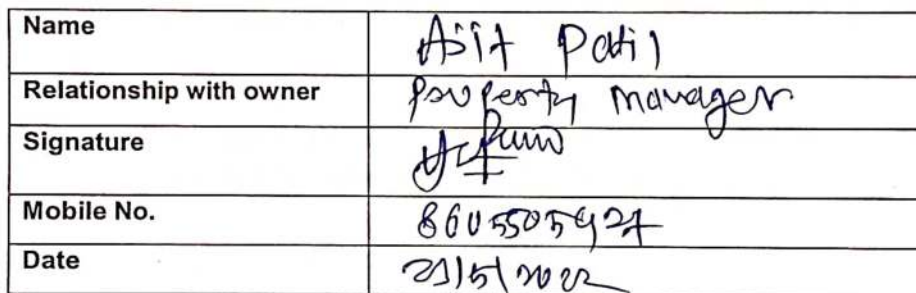 Name Ajit Patil
Relationship with owner Property Manager
Signature
Mobile No. 8605505927
Date